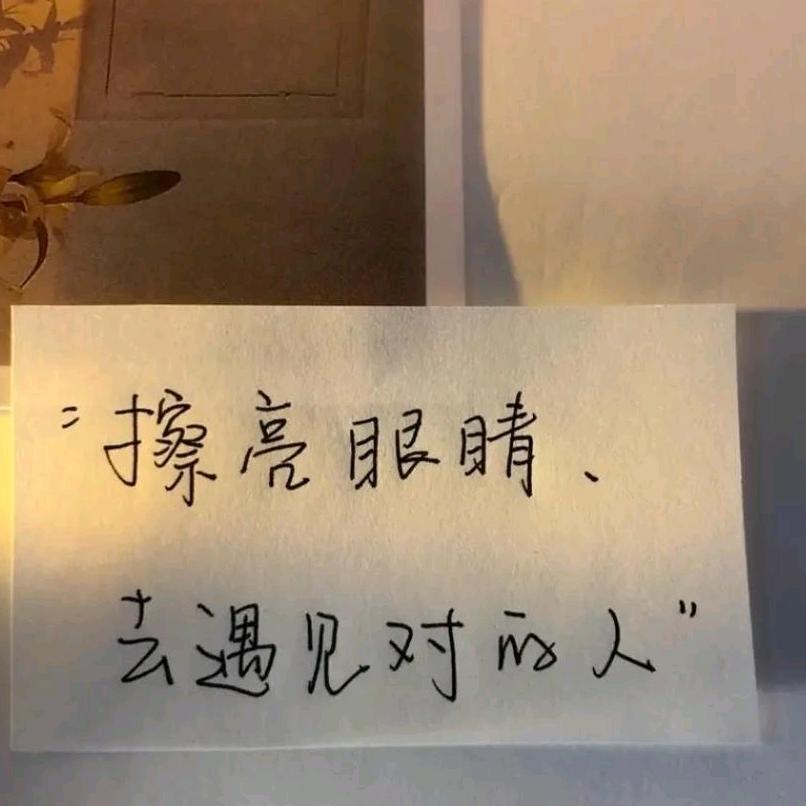 “擦亮眼睛、
去遇见对的人”